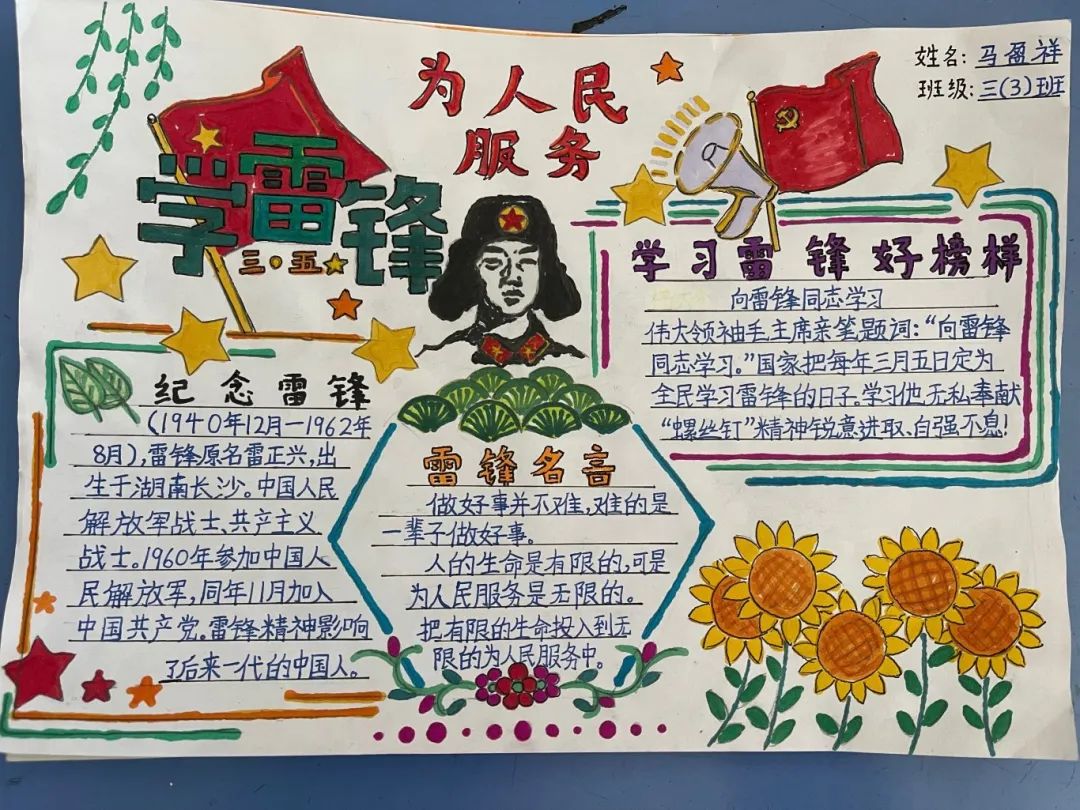 为人民
服务
姓名:马盈祥
班级:三(3)班
学雷锋
三·五
学习雷锋好榜样
向雷锋同志学习
伟大领袖毛主席亲笔题词:“向雷锋
同志学习。”国家把每年三月五日定为
全民学习雷锋的日子。学习他,无私奉献
“螺丝钉”精神锐意进取、自强不息!
纪念雷锋
(1940年12月—1962年
8月),雷锋原名雷正兴,出
生于湖南长沙。中国人民
解放军战士、共产主义
战士。1960年参加中国人
民解放军,同年11月加入
中国共产党。雷锋精神影响
了后来一代的中国人。
雷锋名言
做好事并不难,难的是
一辈子做好事。
人的生命是有限的,可是
为人民服务是无限的。
把有限的生命投入到无
限的为人民服务中。